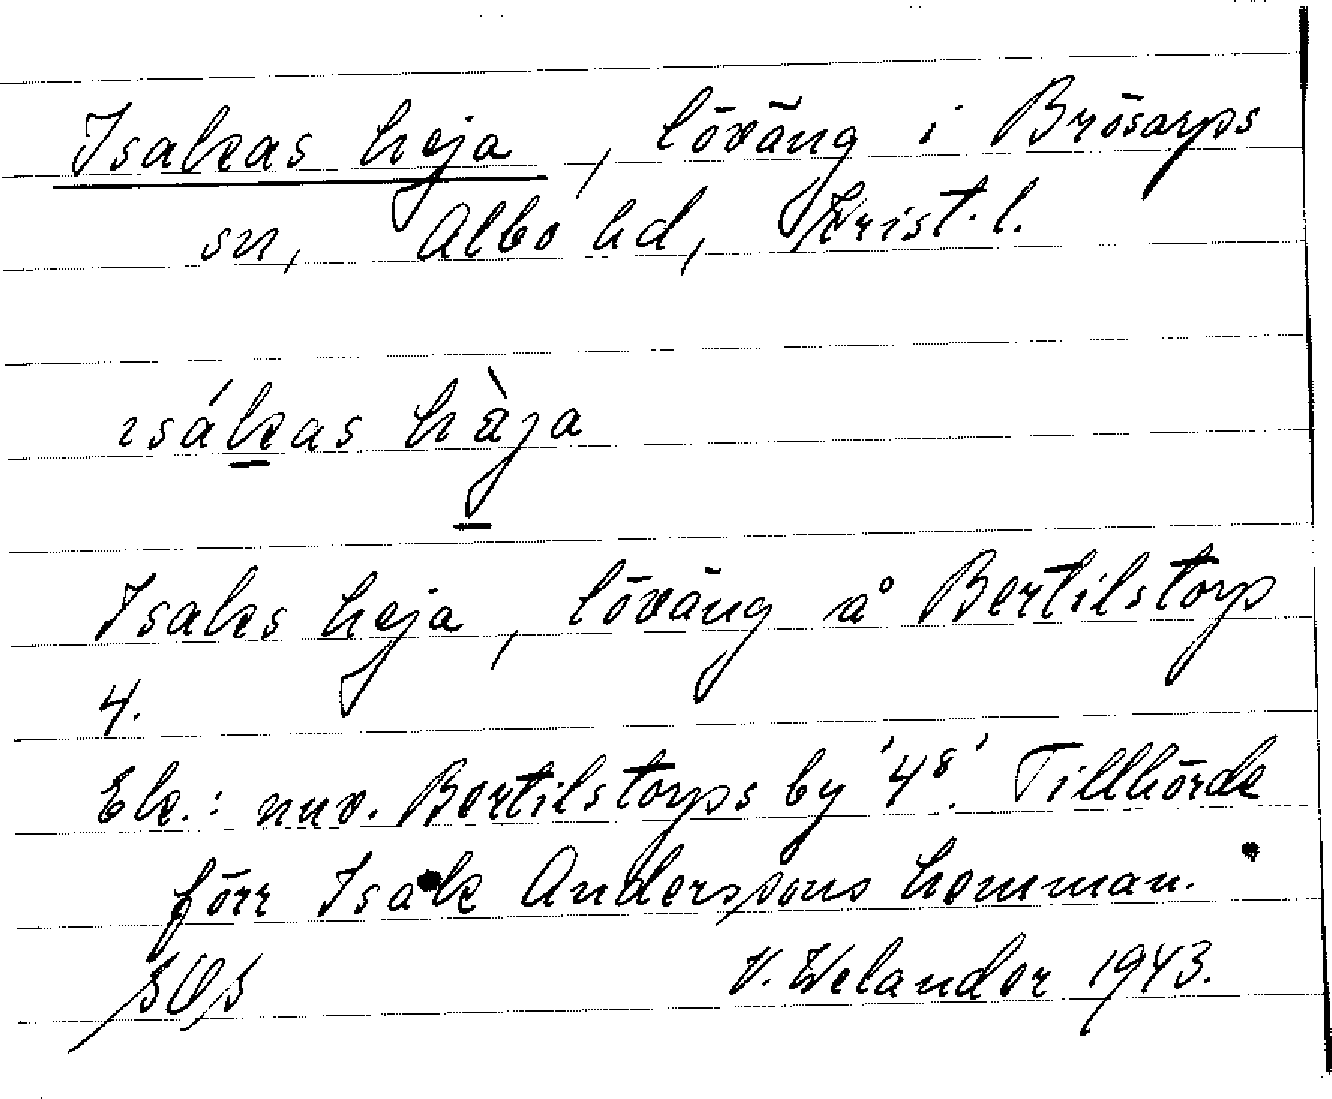 Isakas heja, löväng i Brösarps
sn, Albo hd, Krist. l.
ısákas hàja
Isaks heja, löväng å Bertilstorp
4.
Ek.: nuv. Bertilstorps by '4⁸'. Tillhörde
förr Isak Anderssons hemman.
SOS V. Welander 1943.